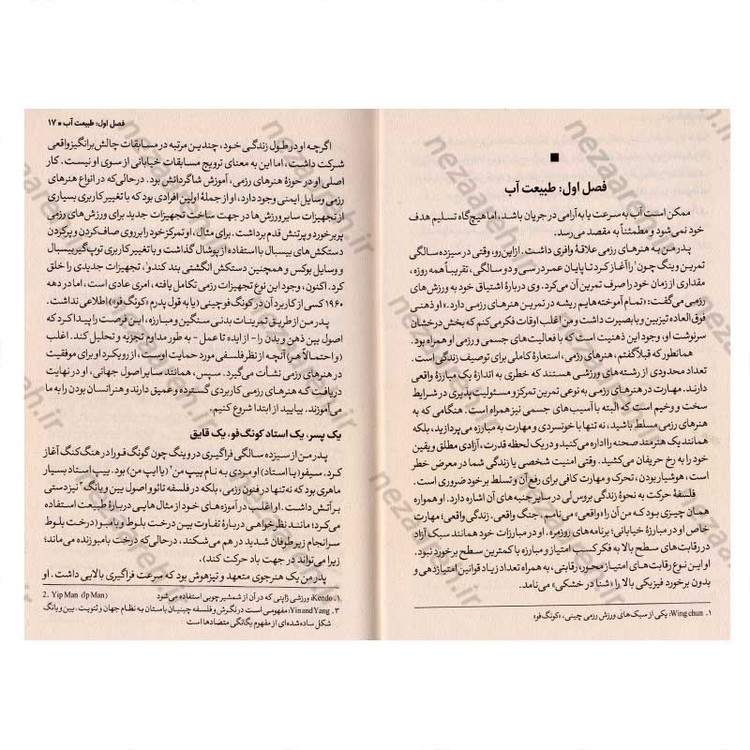 فصل اول: طبیعت آب
ممکن است آب به سرعت یا به‌آرامی در جریان باشد، اما هیچ‌گاه تسلیم هدف
خود نمی‌شود و مطمئناً به مقصد می‌رسد.
پدر من به هنرهای رزمی علاقهٔ وافری داشت. ازاین‌رو، وقتی در سیزده سالگی
تمرین وینگ چون۱ را آغاز کرد تا پایان عمر در سی و دو سالگی، تقریباً همه روزه،
مقداری از زمان خود را صرف تمرین آن می‌کرد. وی دربارهٔ اشتیاق خود به ورزش های
رزمی می‌گفت: «تمام آموخته‌هایم ریشه در تمرین هنرهای رزمی دارد.» او ذهنی
فوق‌العاده تیزبین و با بصیرت داشت و من اغلب اوقات فکر می‌کنم که بخش درخشان
سرنوشت او، وجود این ذهنیت است که با فعالیت‌های جسمی و رزمی او همراه بود.
همانطور که قبلاً گفتم، هنرهای رزمی، استعارهٔ کاملی برای توصیف زندگی است.
تعداد محدودی از رشته‌های ورزشی هستند که خطری به اندازهٔ یک مبارزهٔ واقعی
دارند. مهارت در هنرهای رزمی به نوعی تمرین تمرکز و مسئولیت پذیری در شرایط
سخت و وخیم است که البته با آسیب های جسمی نیز همراه است. هنگامی که به
هنرهای رزمی مسلط باشید، نه تنها با خونسردی و مهارت به مبارزه می‌پردازید، بلکه
همانند یک هنرمند صحنه را اداره می‌کنید و در یک لحظه قدرت، آزادی مطلق و یقین
خود را به رخ حریفان می‌کشید. وقتی امنیت شخصی یا زندگی شما در معرض خطر
باشد، هوشیار بودن، تحرک و مهارت کافی برای رفع آن و تسلط بر خود ضروری است.
فلسفهٔ حرکت به نحوهٔ زندگی بروس‌لی در سایر جنبه‌های آن اشاره دارد. او همواره
همان چیزی بود که من آن را «واقعی» می‌نامم. جنگ واقعی. زندگی واقعی؛ مهارت
خاص او در مبارزهٔ خیابانی؛ برنامه‌های روزمره. او در مبارزات خود همانند سبک آزاد
در رقابت‌های سطح بالا به فکر کسب امتیاز و مبارزه با کمترین سطح برخورد نبود.
او این نوع رقابت‌های امتیاز محور، رقابتی، به همراه تعداد زیاد قوانین امتیازدهی و
بدون برخورد فیزیکی بالا را «شنا در خشکی» می‌نامد.
۱. Wing chun: یکی از سبک‌های ورزش رزمی چینی، «کونگ‌فو»
فصل اول: طبیعت آب ■ ۱۷
اگرچه او در طول زندگی خود، چندین مرتبه در مسابقات چالش برانگیز واقعی
شرکت داشت، اما این به معنای ترویج مسابقات خیابانی از سوی او نیست. کار
اصلی او در حوزهٔ هنرهای رزمی، آموزش شاگردانش بود. درحالی‌که در انواع هنرهای
رزمی وسایل ایمنی وجود دارد، او از جملهٔ اولین افرادی بود که با تغییر کاربری بسیاری
از تجهیزات سایر ورزش‌ها در جهت ساخت تجهیزات جدید برای ورزش‌های رزمی
پر برخورد و پرتنش قدم برداشت. برای مثال، او تمرکز خود را بر روی صاف کردن و پر کردن
دستکش‌های بیسبال با استفاده از پوشال گذاشت و با تغییر کاربری توپ‌گیر بیسبال
و وسایل بوکس و همچنین دستکش انگشتی بند کندو۱، تجهیزات جدیدی را خلق
کرد. اکنون، وجود این نوع تجهیزات رزمی تکامل یافته، امری عادی است، اما در دهه
۱۹۶۰ کسی از کاربرد آن در کونگ‌فو چینی (یا به قول پدرم «کونگ‌فو») اطلاعی نداشت.
پدر من از طریق تمرینات بدنی سنگین و مبارزه، این فرصت را پیدا کرد که
اصول بین ذهن و بدن را – از ایده تا عمل – به طور مداوم تجزیه و تحلیل کند. اغلب
(و احتمالاً هر) آنچه از نظر فلسفی مورد حمایت اوست، از رویکرد او برای موفقیت
در هنرهای رزمی نشأت می‌گیرد. سپس، همانند سایر اصول جهانی، او در نهایت
دریافت که هنرهای رزمی کاربردی گسترده و عمیق دارند و هنرآنسان بودن را به ما
می‌آموزند. بیایید از ابتدا شروع کنیم.
یک پسر، یک استاد کونگ‌فو، یک قایق
پدر من از سیزده سالگی فراگیری در وینگ چون گونگ فو را در هنگ‌کنگ آغاز
کرد. سیفو (یا استاد) او مردی به نام ییپ من۲ (یا ایپ من) بود. ییپ استاد بسیار
ماهری بود که نه‌تنها در فنون رزمی، بلکه در فلسفه تائو و اصول یین و یانگ۳ نیز دستی
بر آتش داشت. او اغلب در آموزه‌های خود از مثال‌هایی دربارهٔ طبیعت استفاده
می‌کرد؛ مانند نظرخواهی دربارهٔ تفاوت بین درخت بلوط و بامبو (درخت بلوط
سرانجام زیر طوفان شدید در هم می‌شکند، درحالی‌که درخت بامبو زنده می‌ماند؛
زیرا می‌تواند در جهت باد حرکت کند).
پدر من یک هنرجوی متعهد و تیزهوش بود که سرعت فراگیری بالایی داشت. او
۱. Kendo: ورزشی ژاپنی که در آن از شمشیر چوبی استفاده می‌شود
2. Yip Man (Ip Man)
۳. Yin and Yang: مفهومی است در نگرش و فلسفه چینیان باستان به نظام جهان و ثنویت. یین و یانگ
شکل ساده شده‌ای از مفهوم یگانگی متضادها است
nezaareh.ir